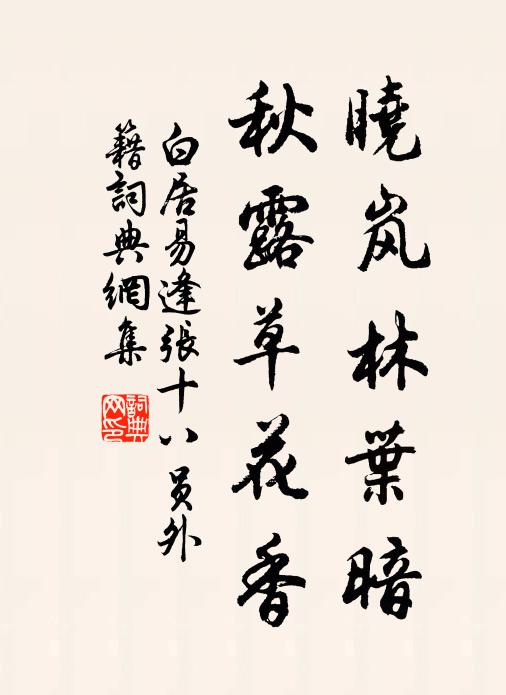 曉岚林葉暗
秋露草花香
白居易逢張十八員外
籍詞典網集
詞典网印